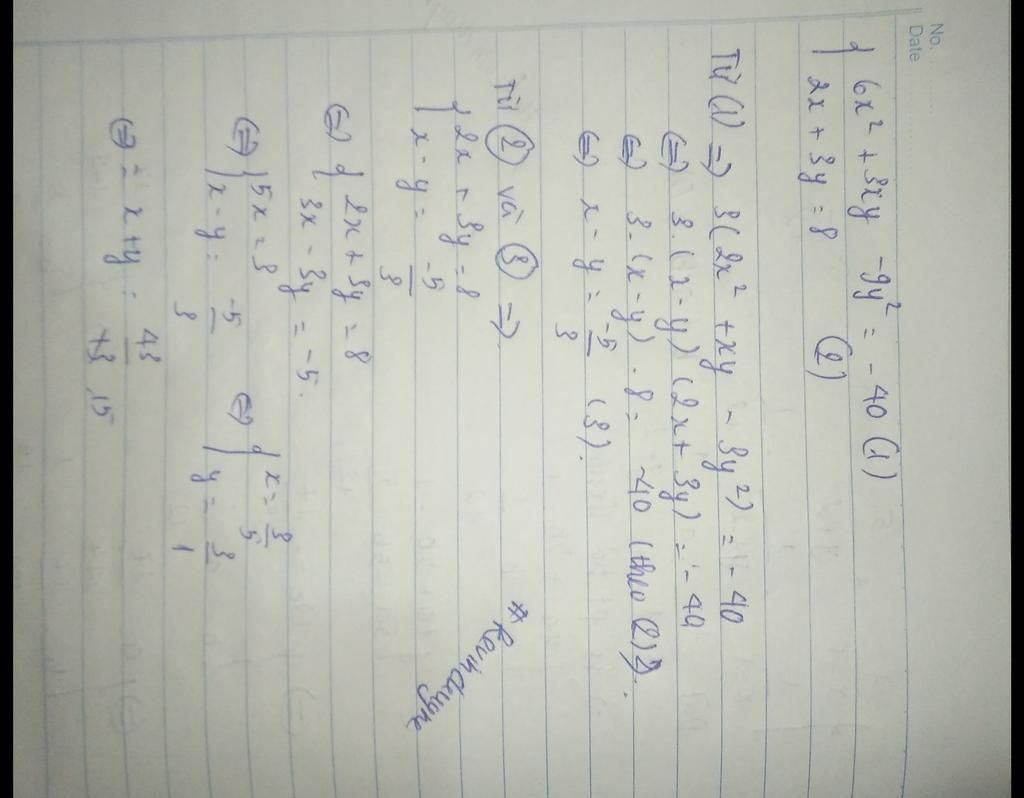 No.
Date
{ 6x² + 3xy - 9y² = - 40 (1)
2x + 3y = 8 (2)
Từ (1) => 3(2x² + xy - 3y²) = - 40
(=) 3.(x - y) (2x + 3y) = - 40
(=) 3.(x - y) . 8 = - 40 (theo (2)).
(=) x - y = -5/3 (3).
Từ (2) và (3) =>
{ 2x + 3y = 8
x - y = -5/3
(=) { 2x + 3y = 8
3x - 3y = -5.
(=) { 5x = 3
x - y = -5/3
(=) { x = 3/5
y = 3/1
(=) = x + y =
* Kevindyne